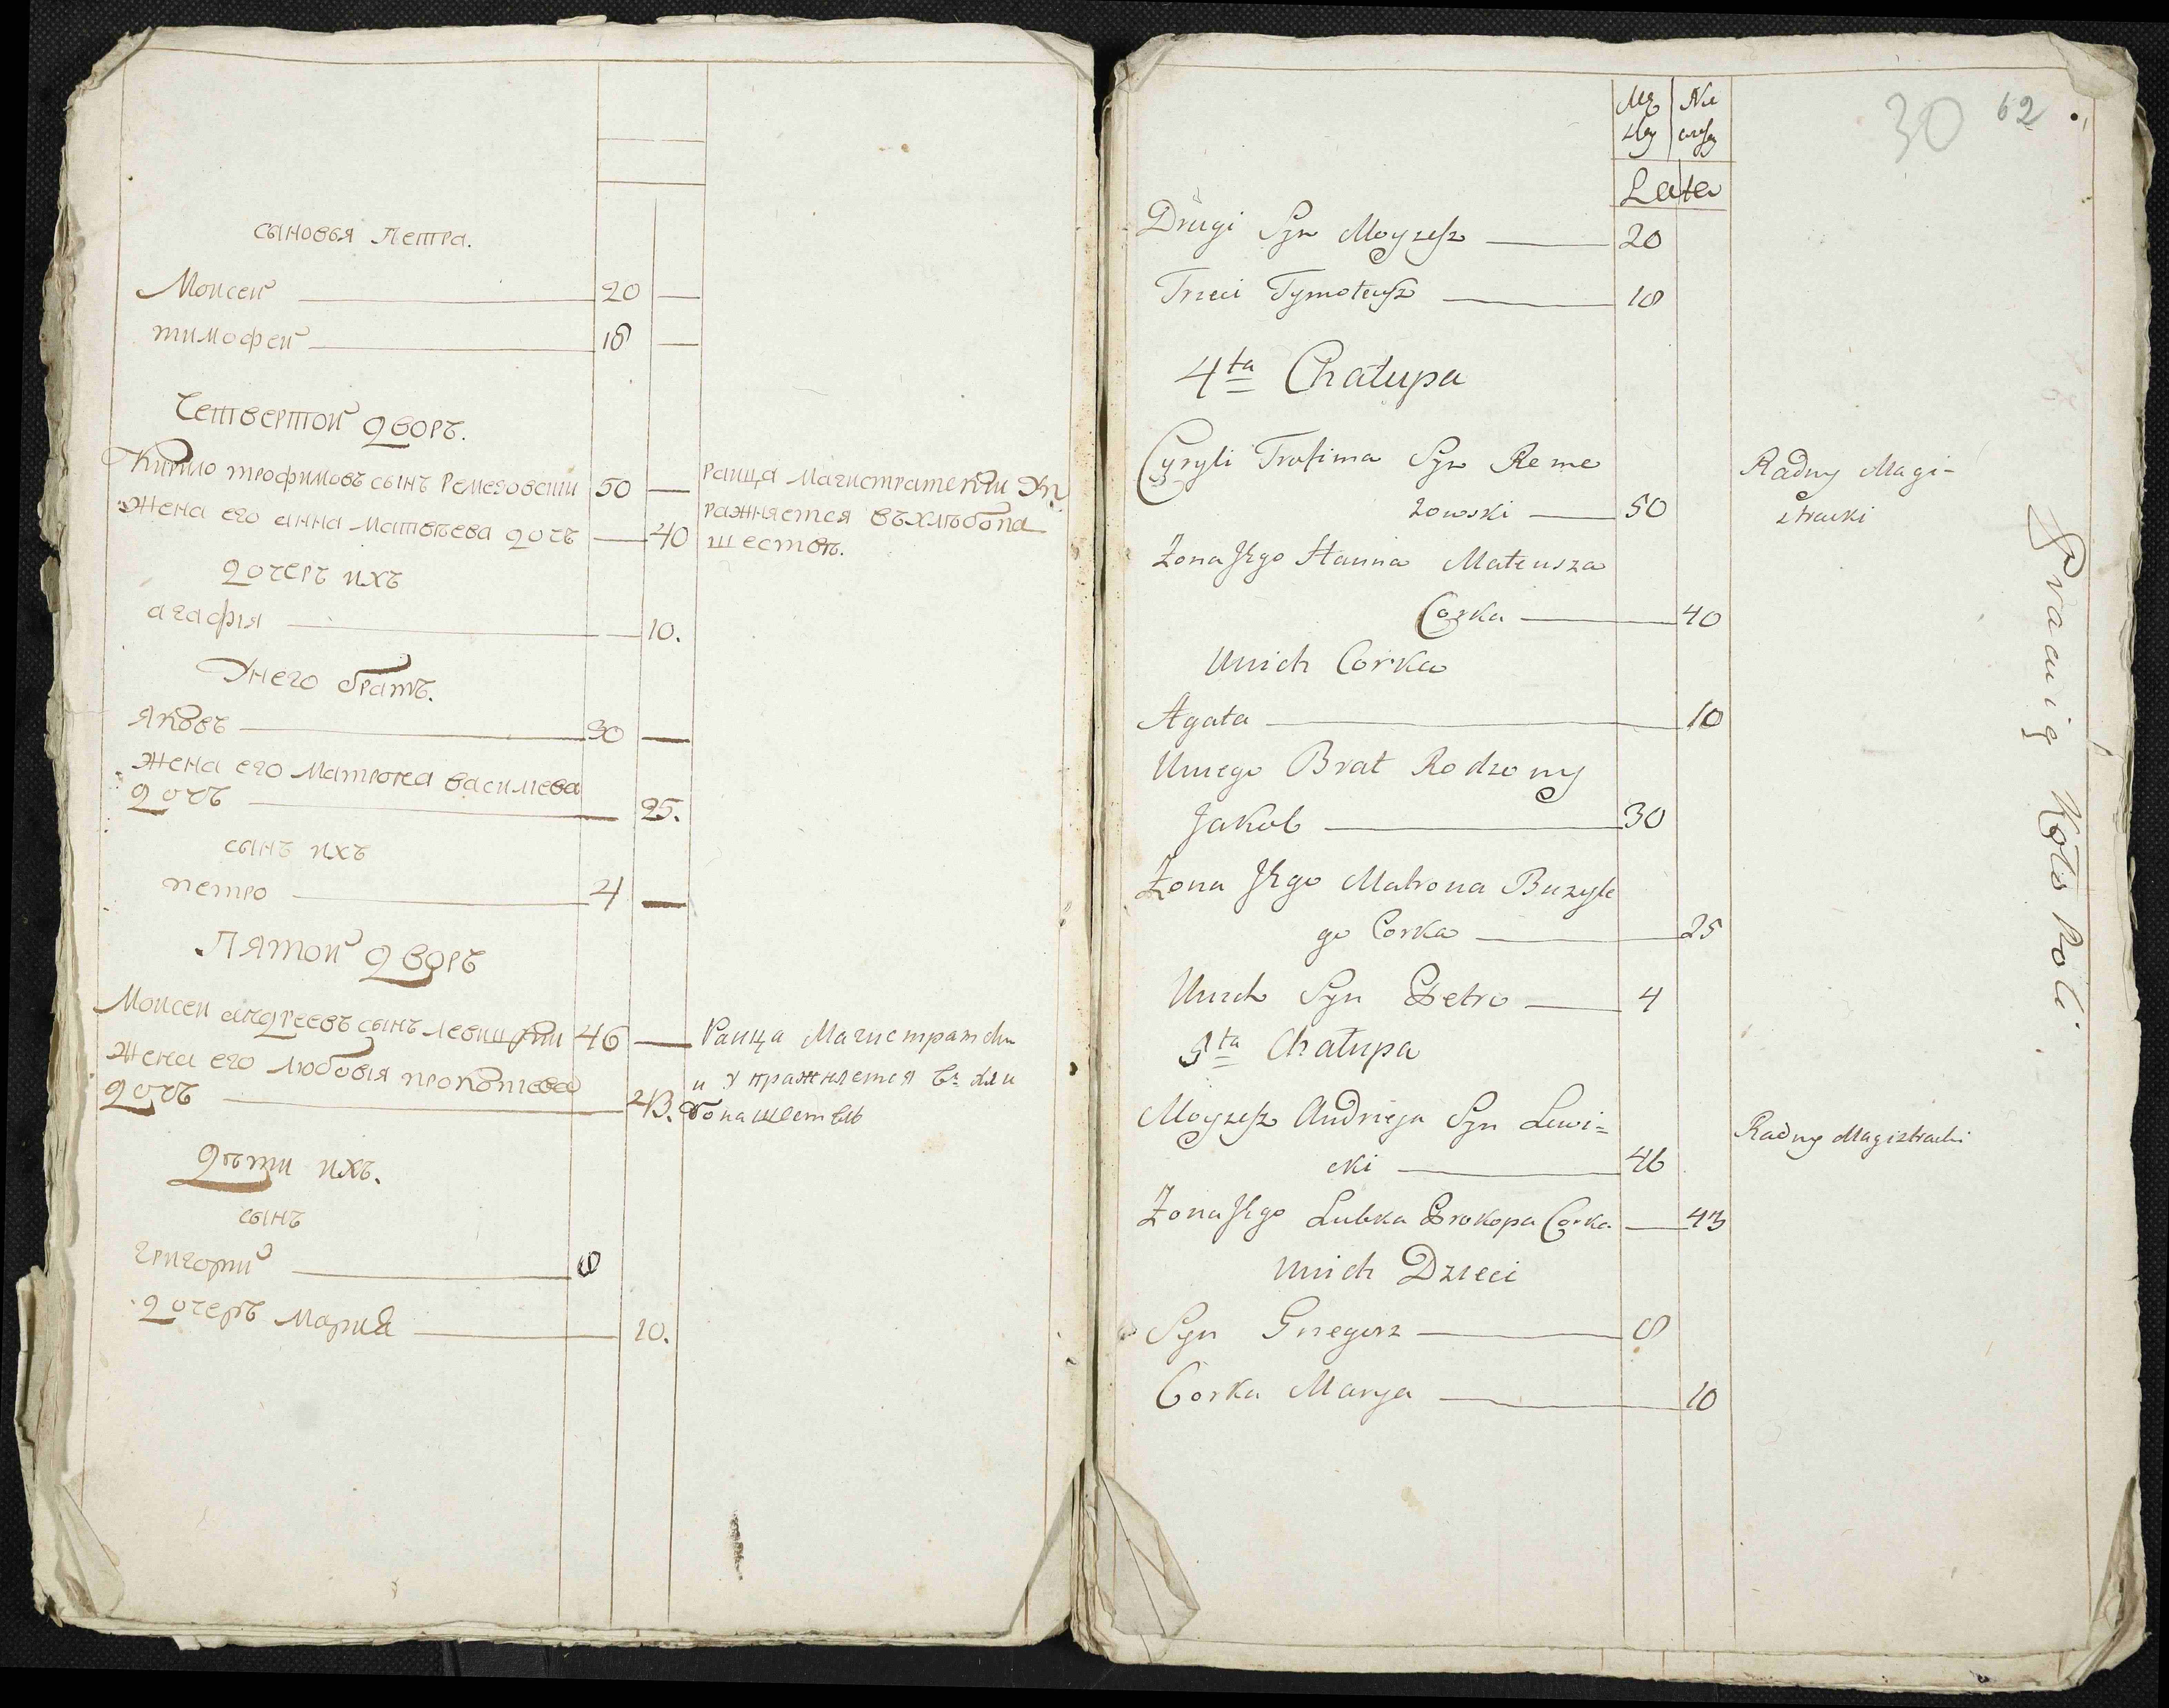 сыновья Петра.
Моисей 20
тимофей 18
Четвертой дворъ.
Кирило трофимовъ сынъ Ремезовский 50
раица магистратский Уп
ражняется въ хлѣбопа
шестве.
жена его анна матвѣева дочь 40
дочерь ихъ
агафiя 10.
У него братъ.
яковъ 30
жена его матрона василиева
дочь 25.
сынъ ихъ
петро 4
Пятой дворъ
Моисеи андреевъ сынъ левицкии 46
Раица Магистратски
и упражняется въ хли
бопашествѣ
жена его любовiя прокопиева
дочь 43.
дѣти ихъ.
сынъ
григорий 8
дочерь мария 10.
30 62
Męz Nie
zky
Lata
Drugi Syn Moyzesz 20
Trzeci Tymoteusz 18
4ta Chałupa
Cyryli Trofima Syn Reme
zowski 50
Radny Magi-
stracki
Żona Jego Hanna Mateusza
Corka 40
Unich Corka
Agata 10
Uniego Brat Rodzony
Jakob 30
Żona Jego Matrona Bazyle
go Corka 25
Unich Syn Petro 4
5ta Chałupa
Moyzesz Andrieja Syn Lewi=
cki 46
Radny Magistracki
Żona Jego Lubka Prokopa Corka 43
Unich Dzieci
Syn Gregorz 8
Corka Marya 10
Pracuią Koło Roli